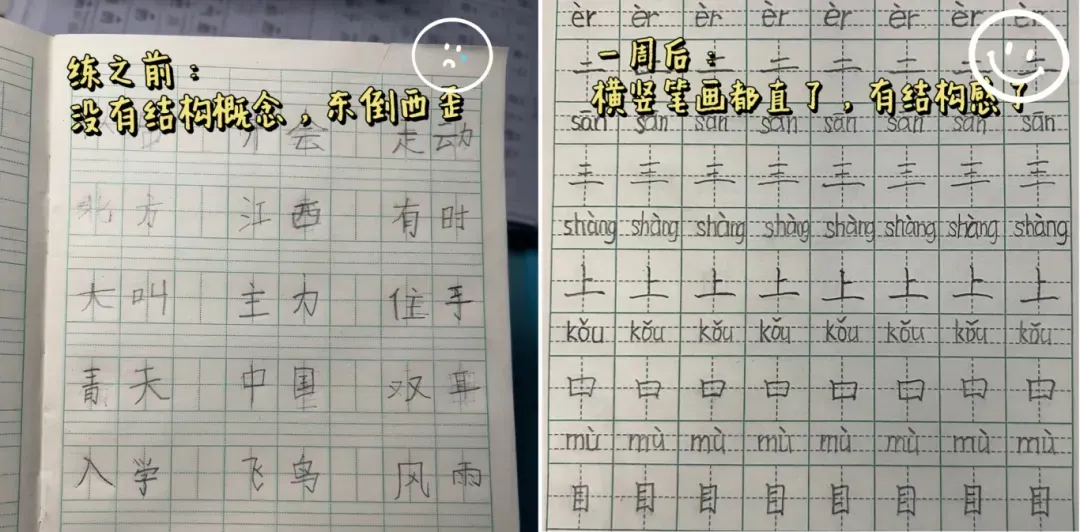 练之前：
没有结构概念，东倒西歪
会 走动
北方 江西 有时
大叫 主力 住手
青天 中国 双耳
入学 飞鸟 风雨
一周后：
横竖笔画都直了，有结构感了
èr èr èr èr èr èr èr èr
二 二 二 二 二 二 二 二
sān sān sān sān sān sān sān sān
三 三 三 三 三 三 三 三
shàng shàng shàng shàng shàng shàng shàng shàng
上 上 上 上 上 上 上 上
kǒu kǒu kǒu kǒu kǒu kǒu kǒu kǒu
口 口 口 口 口 口 口 口
mù mù mù mù mù mù mù mù
目 目 目 目 目 目 目 目